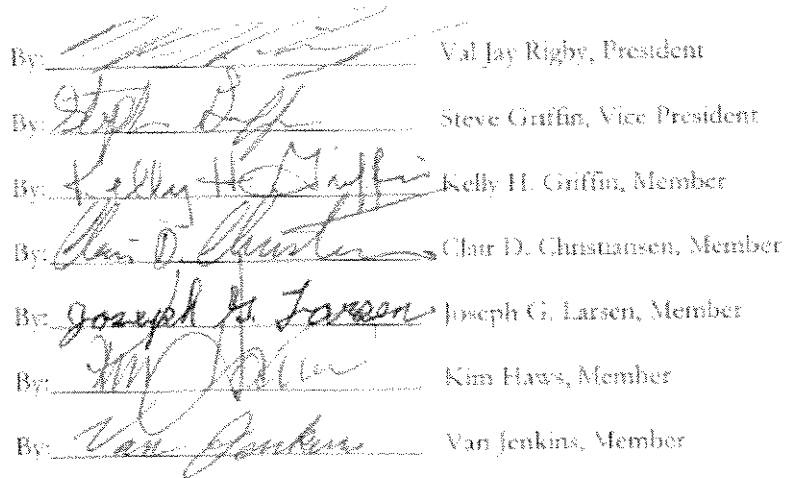 By: Val Jay Rigby, President
By: Steve Griffin, Vice President
By: Kelly H. Griffin Kelly H. Griffin, Member
By: Clair D. Christiansen, Member
By: Joseph G. Larsen Joseph G. Larsen, Member
By: Kim Haws, Member
By: Van Jenkins Van Jenkins, Member